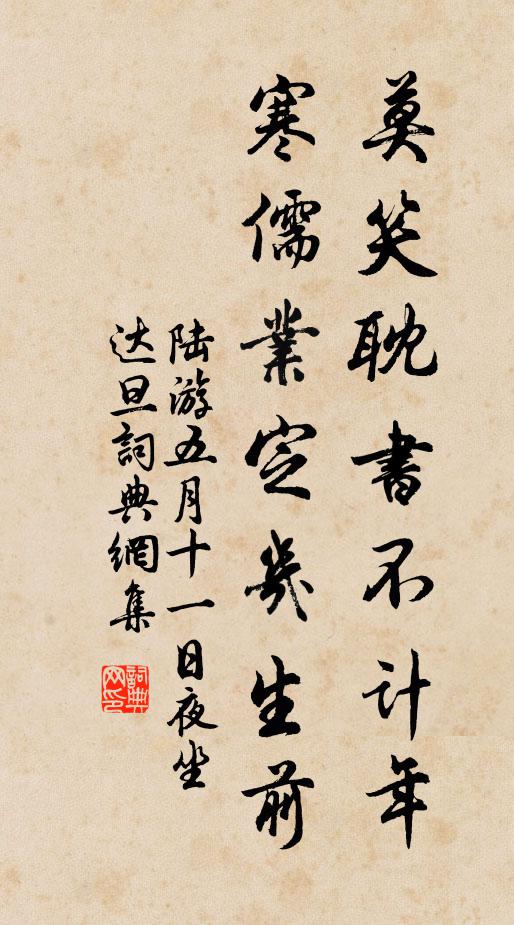 莫笑耽書不计年
寒儒業定幾生前
陆游五月十一日夜坐
达旦詞典網集
詞典网印